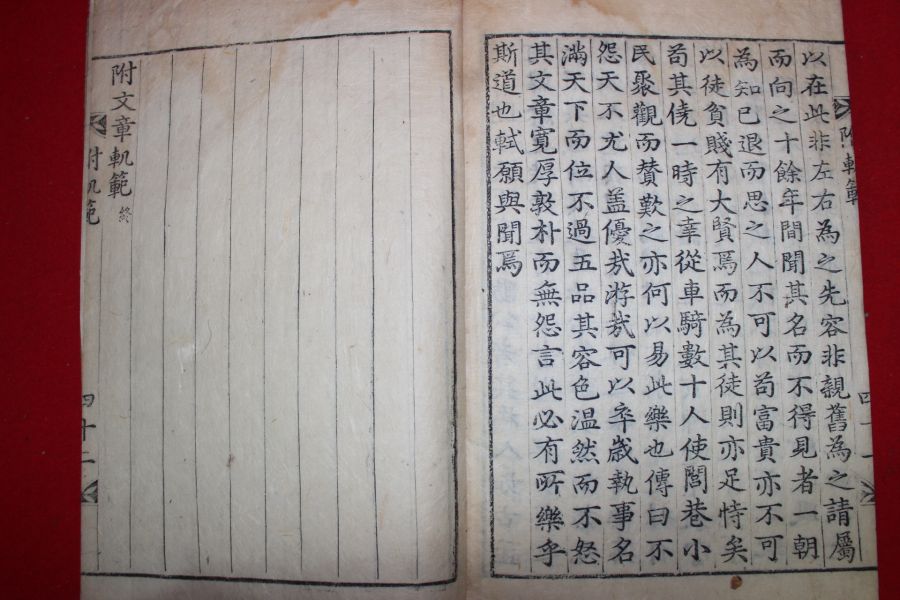 附軌範
以在此非左右為之先容非親舊為之請屬
而向之十餘年間聞其名而不得見者一朝
為知已退而思之人不可以苟富貴亦不可
以徒貧賤有大賢焉而為其徒則亦足恃矣
苟其僥一時之幸從車騎數十人使閭巷小
民聚觀而賛歎之亦何以易此樂也傳曰不
怨天不尤人盖優㢤游㢤可以卒歲執事名
滿天下而位不過五品其容色温然而不怒
其文章寬厚敦朴而無怨言此必有所樂乎
斯道也軾願與聞焉
附文章軌範終
附軌範
四十二